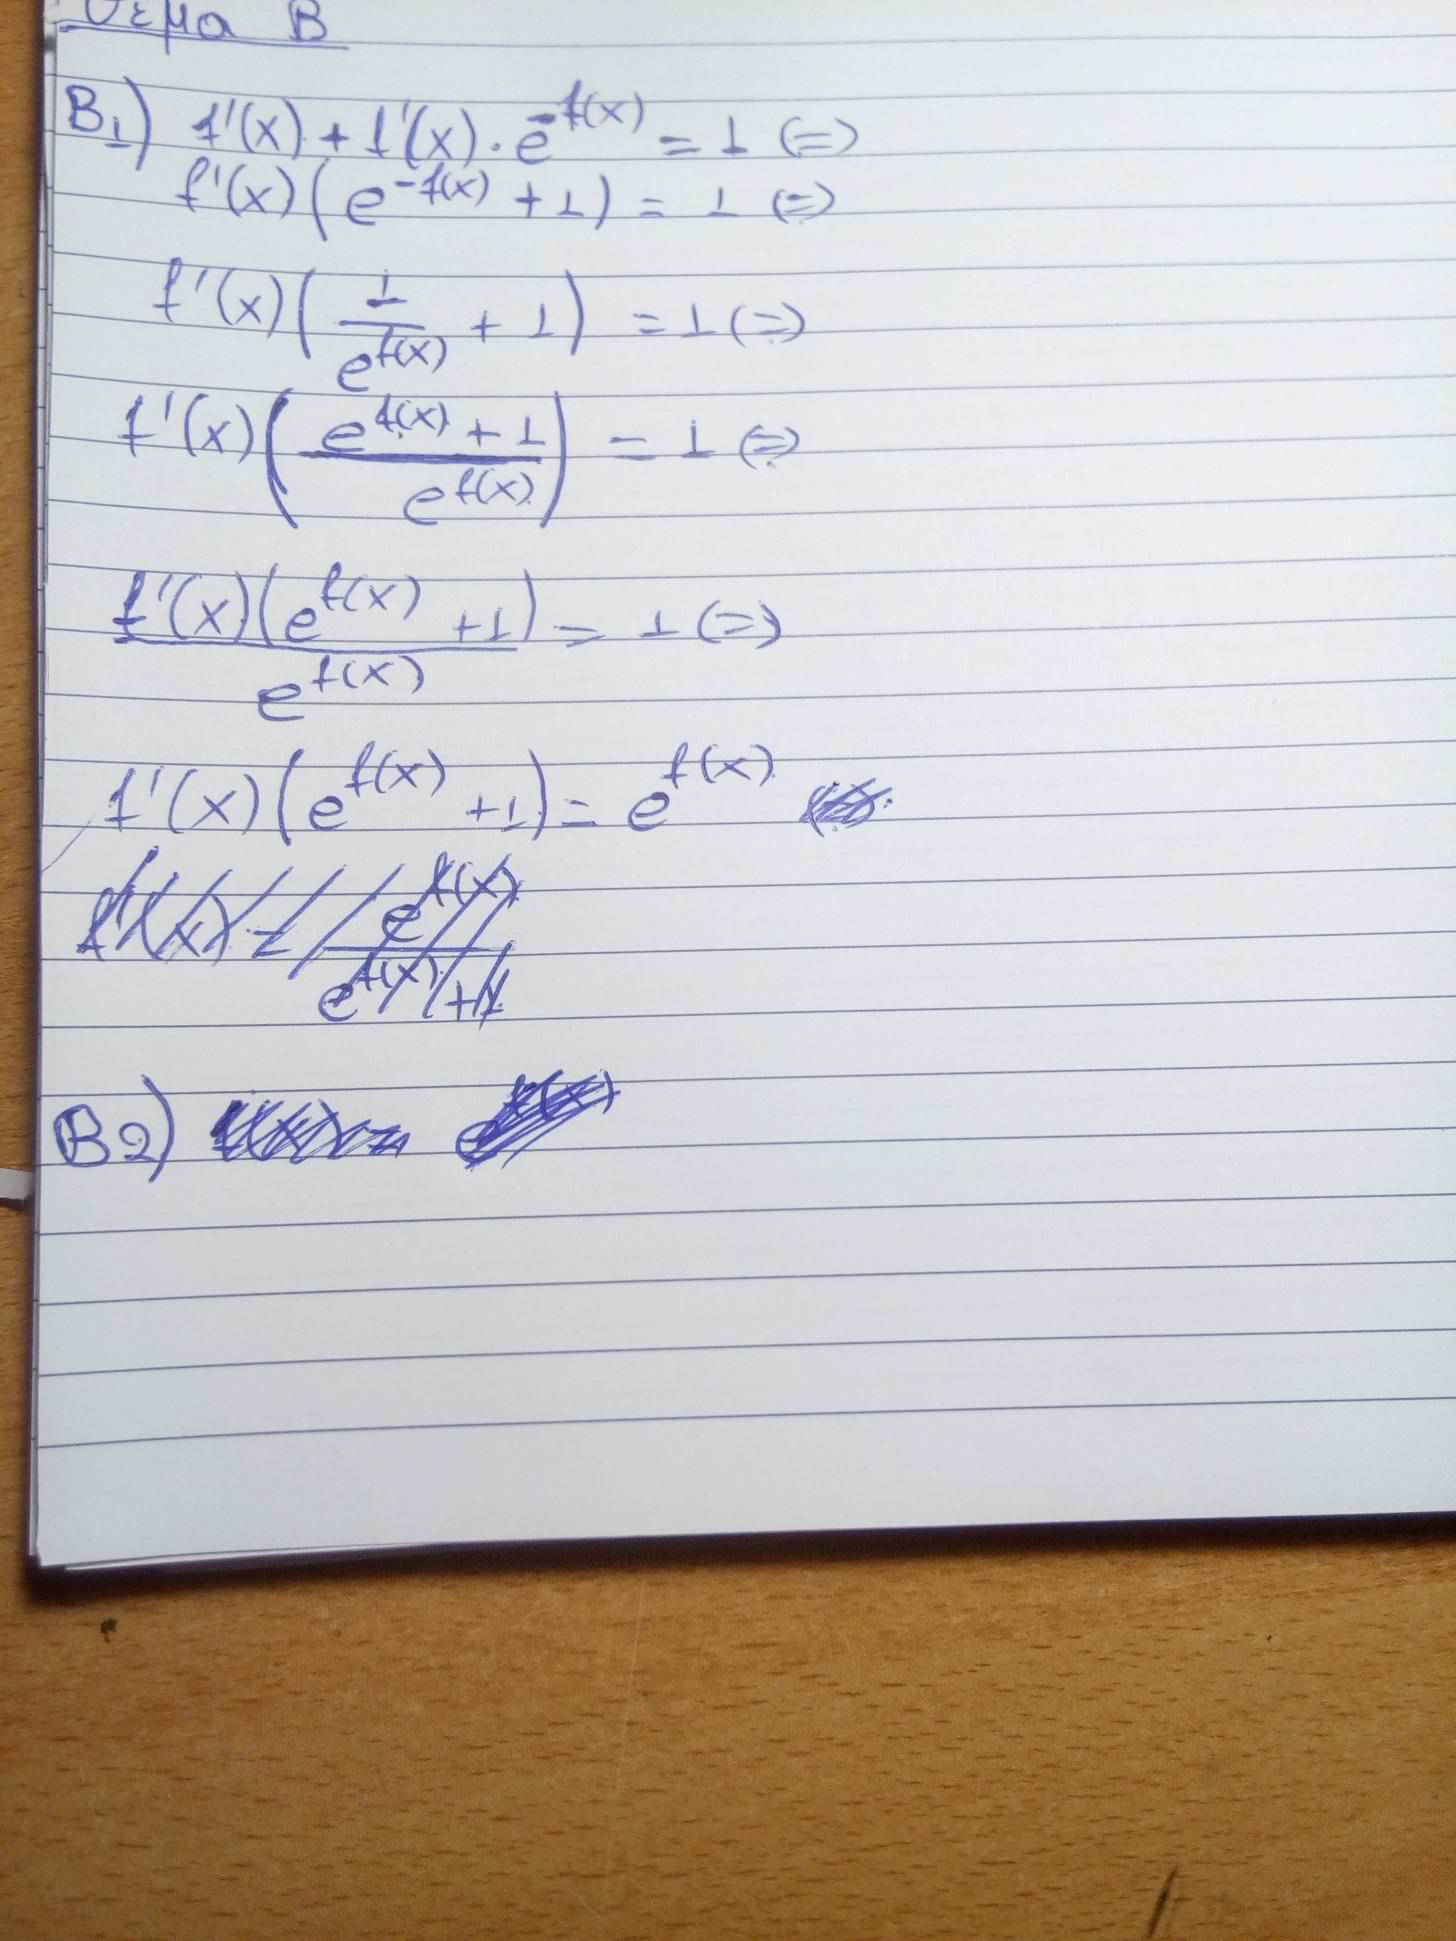 Θέμα Β
B1) f'(x) + f'(x) · e^{-f(x)} = 1 (=)
f'(x) (e^{-f(x)} + 1) = 1 (=)
f'(x) (1/e^{f(x)} + 1) = 1 (=)
f'(x) ((e^{f(x)} + 1)/e^{f(x)}) = 1 (=)
(f'(x) (e^{f(x)} + 1))/e^{f(x)} = 1 (=)
f'(x) (e^{f(x)} + 1) = e^{f(x)}
f'(x) = e^{f(x)}/(e^{f(x)} + 1)
B2)